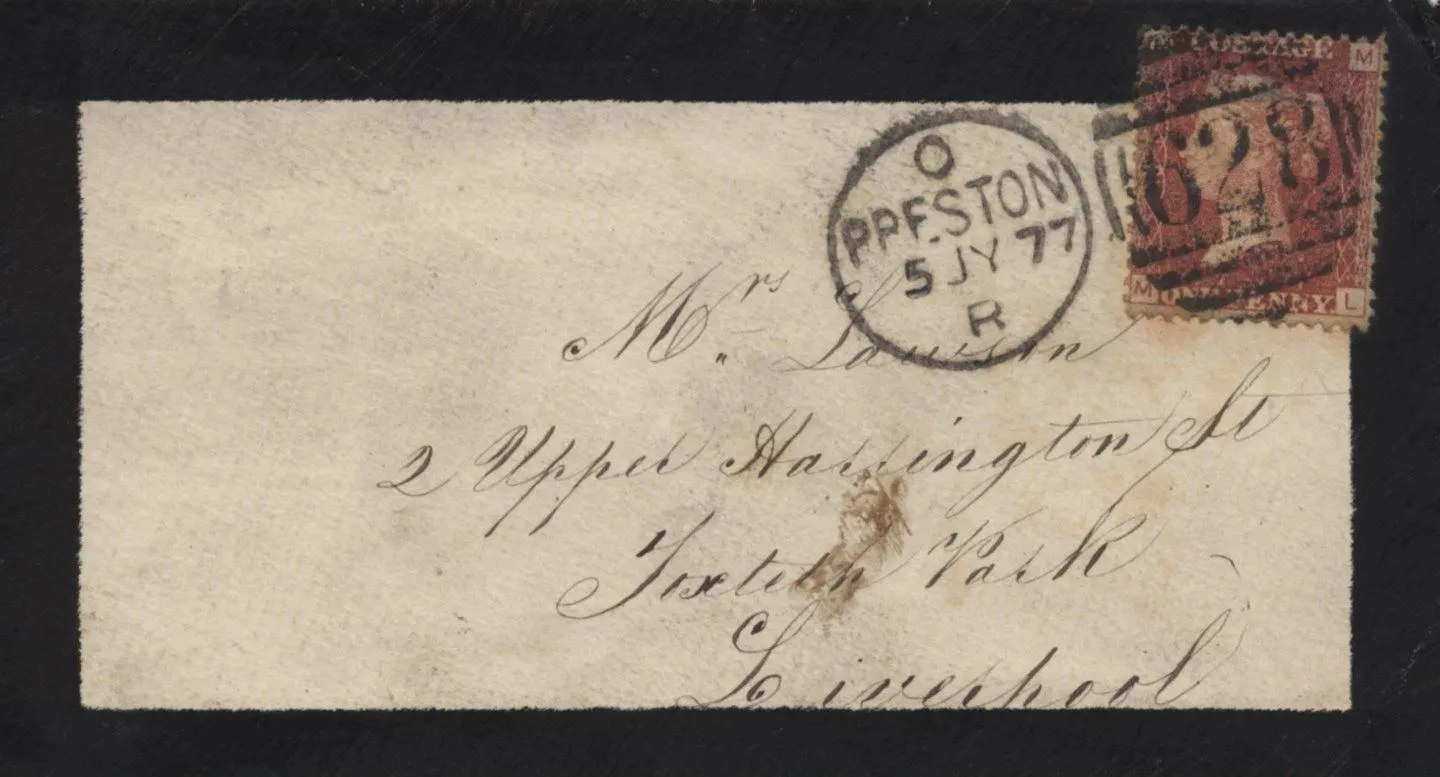 POSTAGE M
628
O
PRESTON
5 JY 77
R
M ONE PENNY L
Mrs. Lawson
2 Upper Harrington St
Toxteth Park
Liverpool